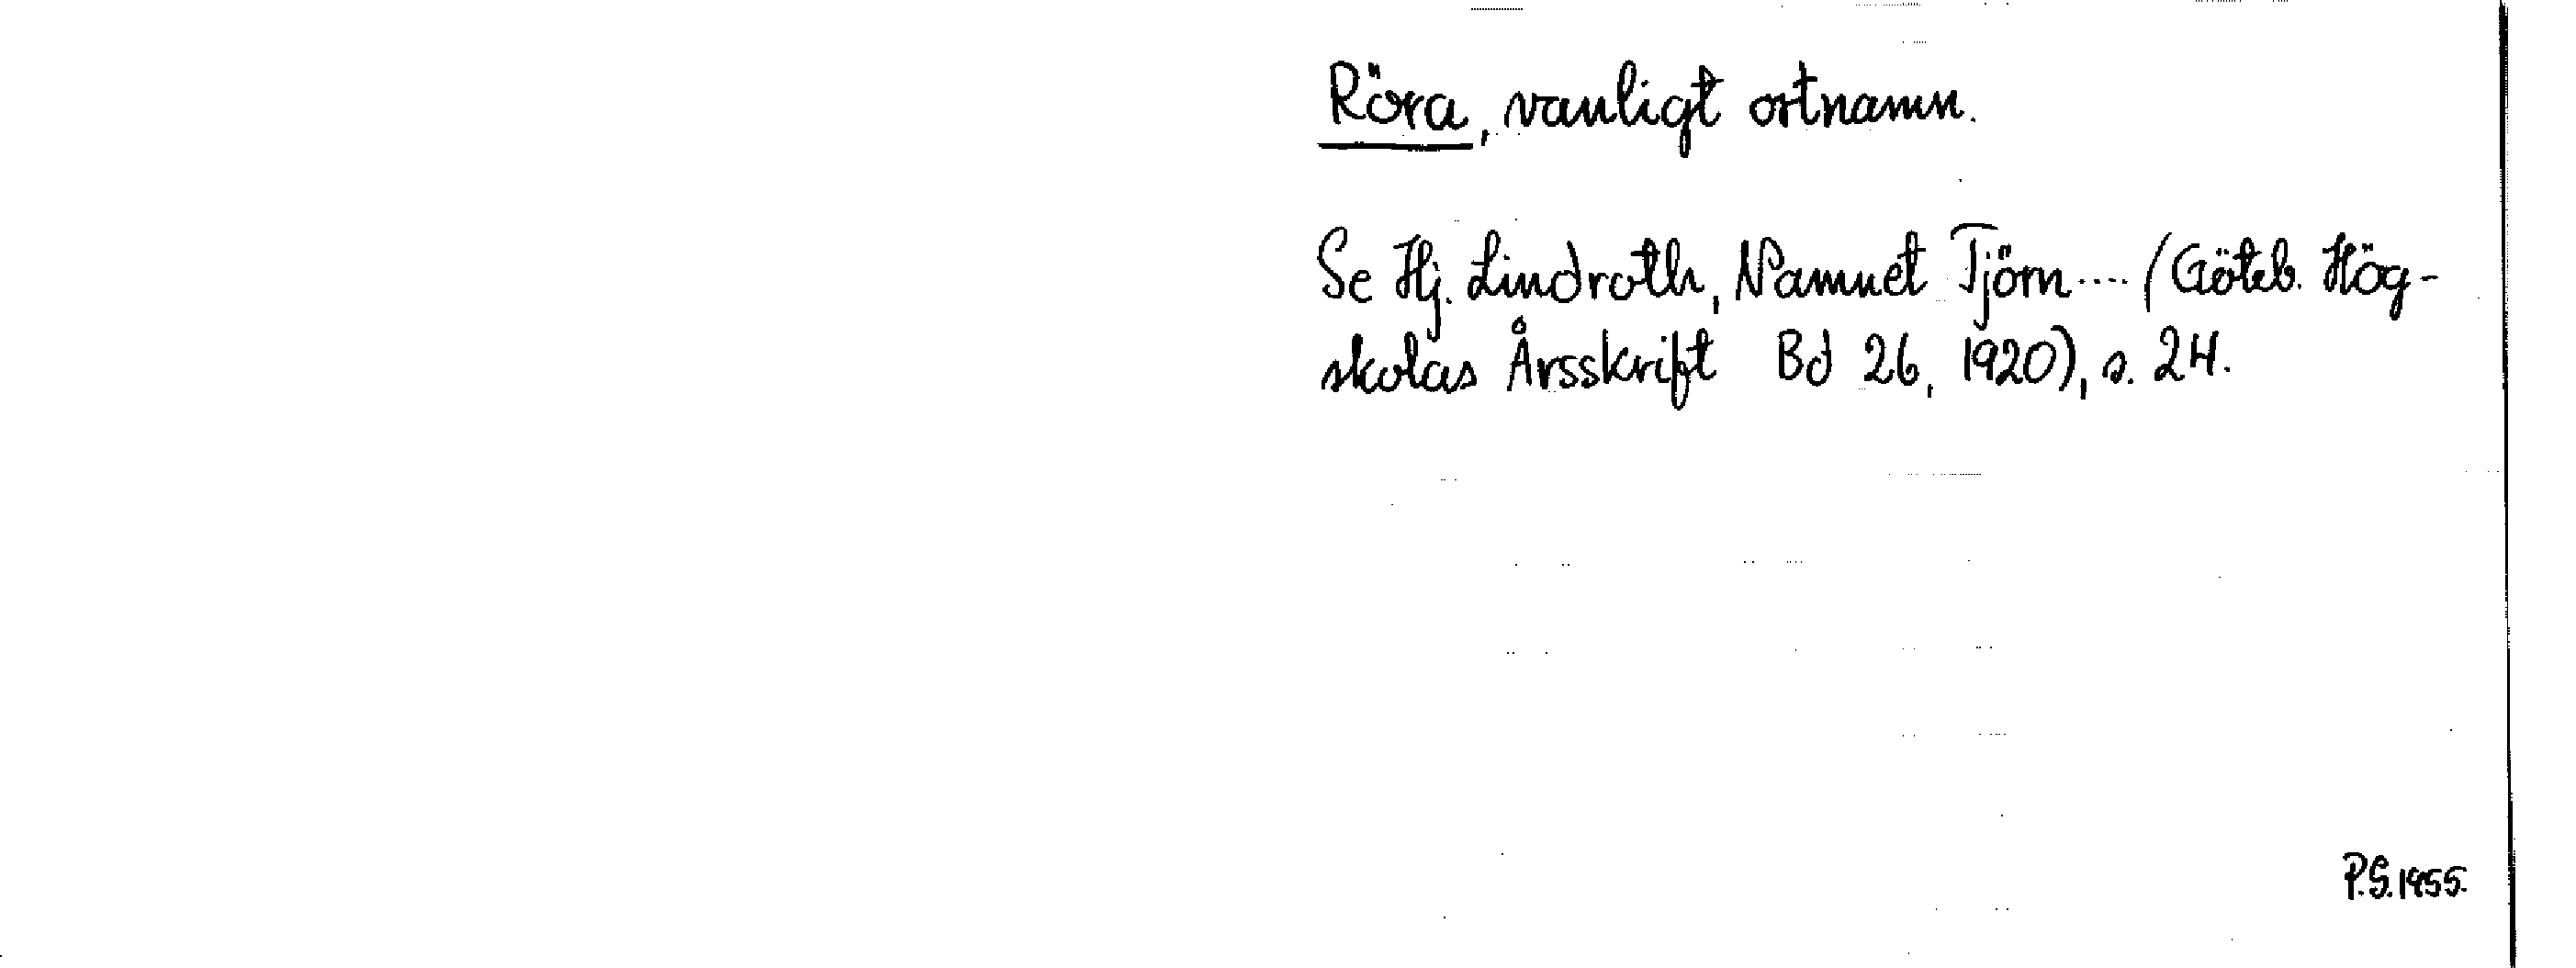 Röra, vanligt ortnamn.
Se Hj. Lindroth, Namnet Tjörn.... (Göteb. Hög-
skolas Årsskrift Bd 26, 1920), s. 24.
P.G. 1955.